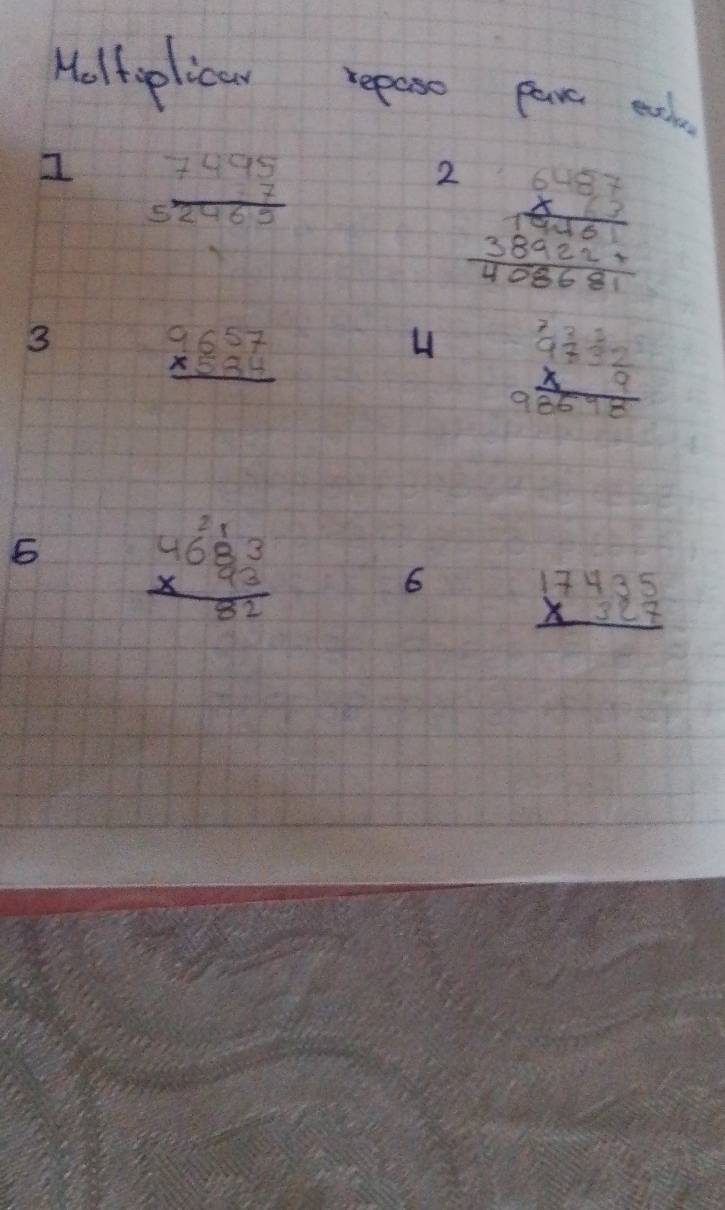 Moltiplicar repaso para
1 7495
7
52465
2 6487
x 63
19461
38922+
408681
3 9657
x 534
4 9732
x 9
98698
5 21
4683
x 93
82
6 17435
x 327